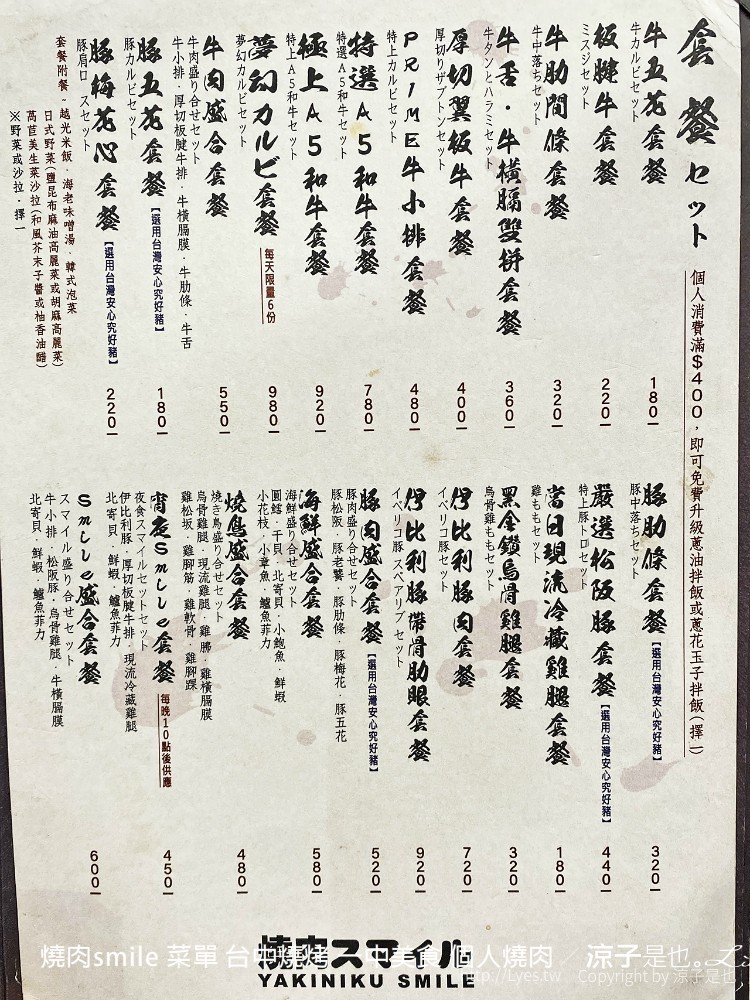 套餐セット
個人消費滿$400，即可免費升級蔥油拌飯或蔥花玉子拌飯(擇一)
牛五花套餐
牛カルビセット
180
板腱牛套餐
ミスジセット
220
牛肋間條套餐
牛中落ちセット
320
牛舌・牛橫膈雙拼套餐
牛タンとハラミセット
360
厚切翼板牛套餐
厚切りザブトンセット
400
PRIME牛小排套餐
特上カルビセット
480
特選A5和牛套餐
特選A5和牛セット
780
極上A5和牛套餐
特上A5和牛セット
920
夢幻カルビ套餐
每天限量6份
夢幻カルビセット
980
牛肉盛合套餐
牛肉盛り合せセット
牛小排．厚切板腱牛排．牛橫膈膜．牛肋條．牛舌
550
豚五花套餐【選用台灣安心究好豬】
豚カルビセット
180
豚梅花心套餐【選用台灣安心究好豬】
豚肩口ースセット
220
套餐附餐-越光米飯．海老味噌湯．韓式泡菜
日式野菜(鹽昆布麻油高麗菜或胡麻高麗菜)
萵苣美生菜沙拉(和風芥末子醬或柚香油醋)
※野菜或沙拉．擇一
豚肋條套餐【選用台灣安心究好豬】
豚中落ちセット
320
嚴選松阪豚套餐【選用台灣安心究好豬】
特上豚トロセット
440
當日現流冷藏雞腿套餐
雞ももセット
180
黑金鑽烏骨雞腿套餐
烏骨雞ももセット
320
伊比利豚肉套餐
イベリコ豚セット
720
伊比利豚帶骨肋眼套餐
イベリコ豚スペアリブセット
920
豚肉盛合套餐【選用台灣安心究好豬】
豚肉盛り合せセット
豚松阪．豚老饕．豚肋條．豚梅花．豚五花
520
海鮮盛合套餐
海鮮盛り合せセット
圓鱈．干貝．北寄貝．小鮑魚．鮮蝦
小花枝．小章魚．鱸魚菲力
580
燒鳥盛合套餐
燒き鳥盛り合せセット
烏骨雞腿．現流雞腿．雞胸．雞橫膈膜
雞松坂．雞腳筋．雞軟骨．雞腳踝
480
宵夜Smile套餐
每晚10點後供應
夜食スマイルセットセット
伊比利豚．厚切板腱牛排．現流冷藏雞腿
北寄貝．鮮蝦．鱸魚菲力
450
Smile盛合套餐
スマイル盛り合せセット
牛小排．松阪豚．烏骨雞腿．牛橫膈膜
北寄貝．鮮蝦．鱸魚菲力
600
燒肉スマイル
YAKINIKU SMILE
燒肉smile 菜單 台中燒烤 一中美食 個人燒肉 ／ 涼子是也。
http://Lyes.tw
Copyright by 涼子是也